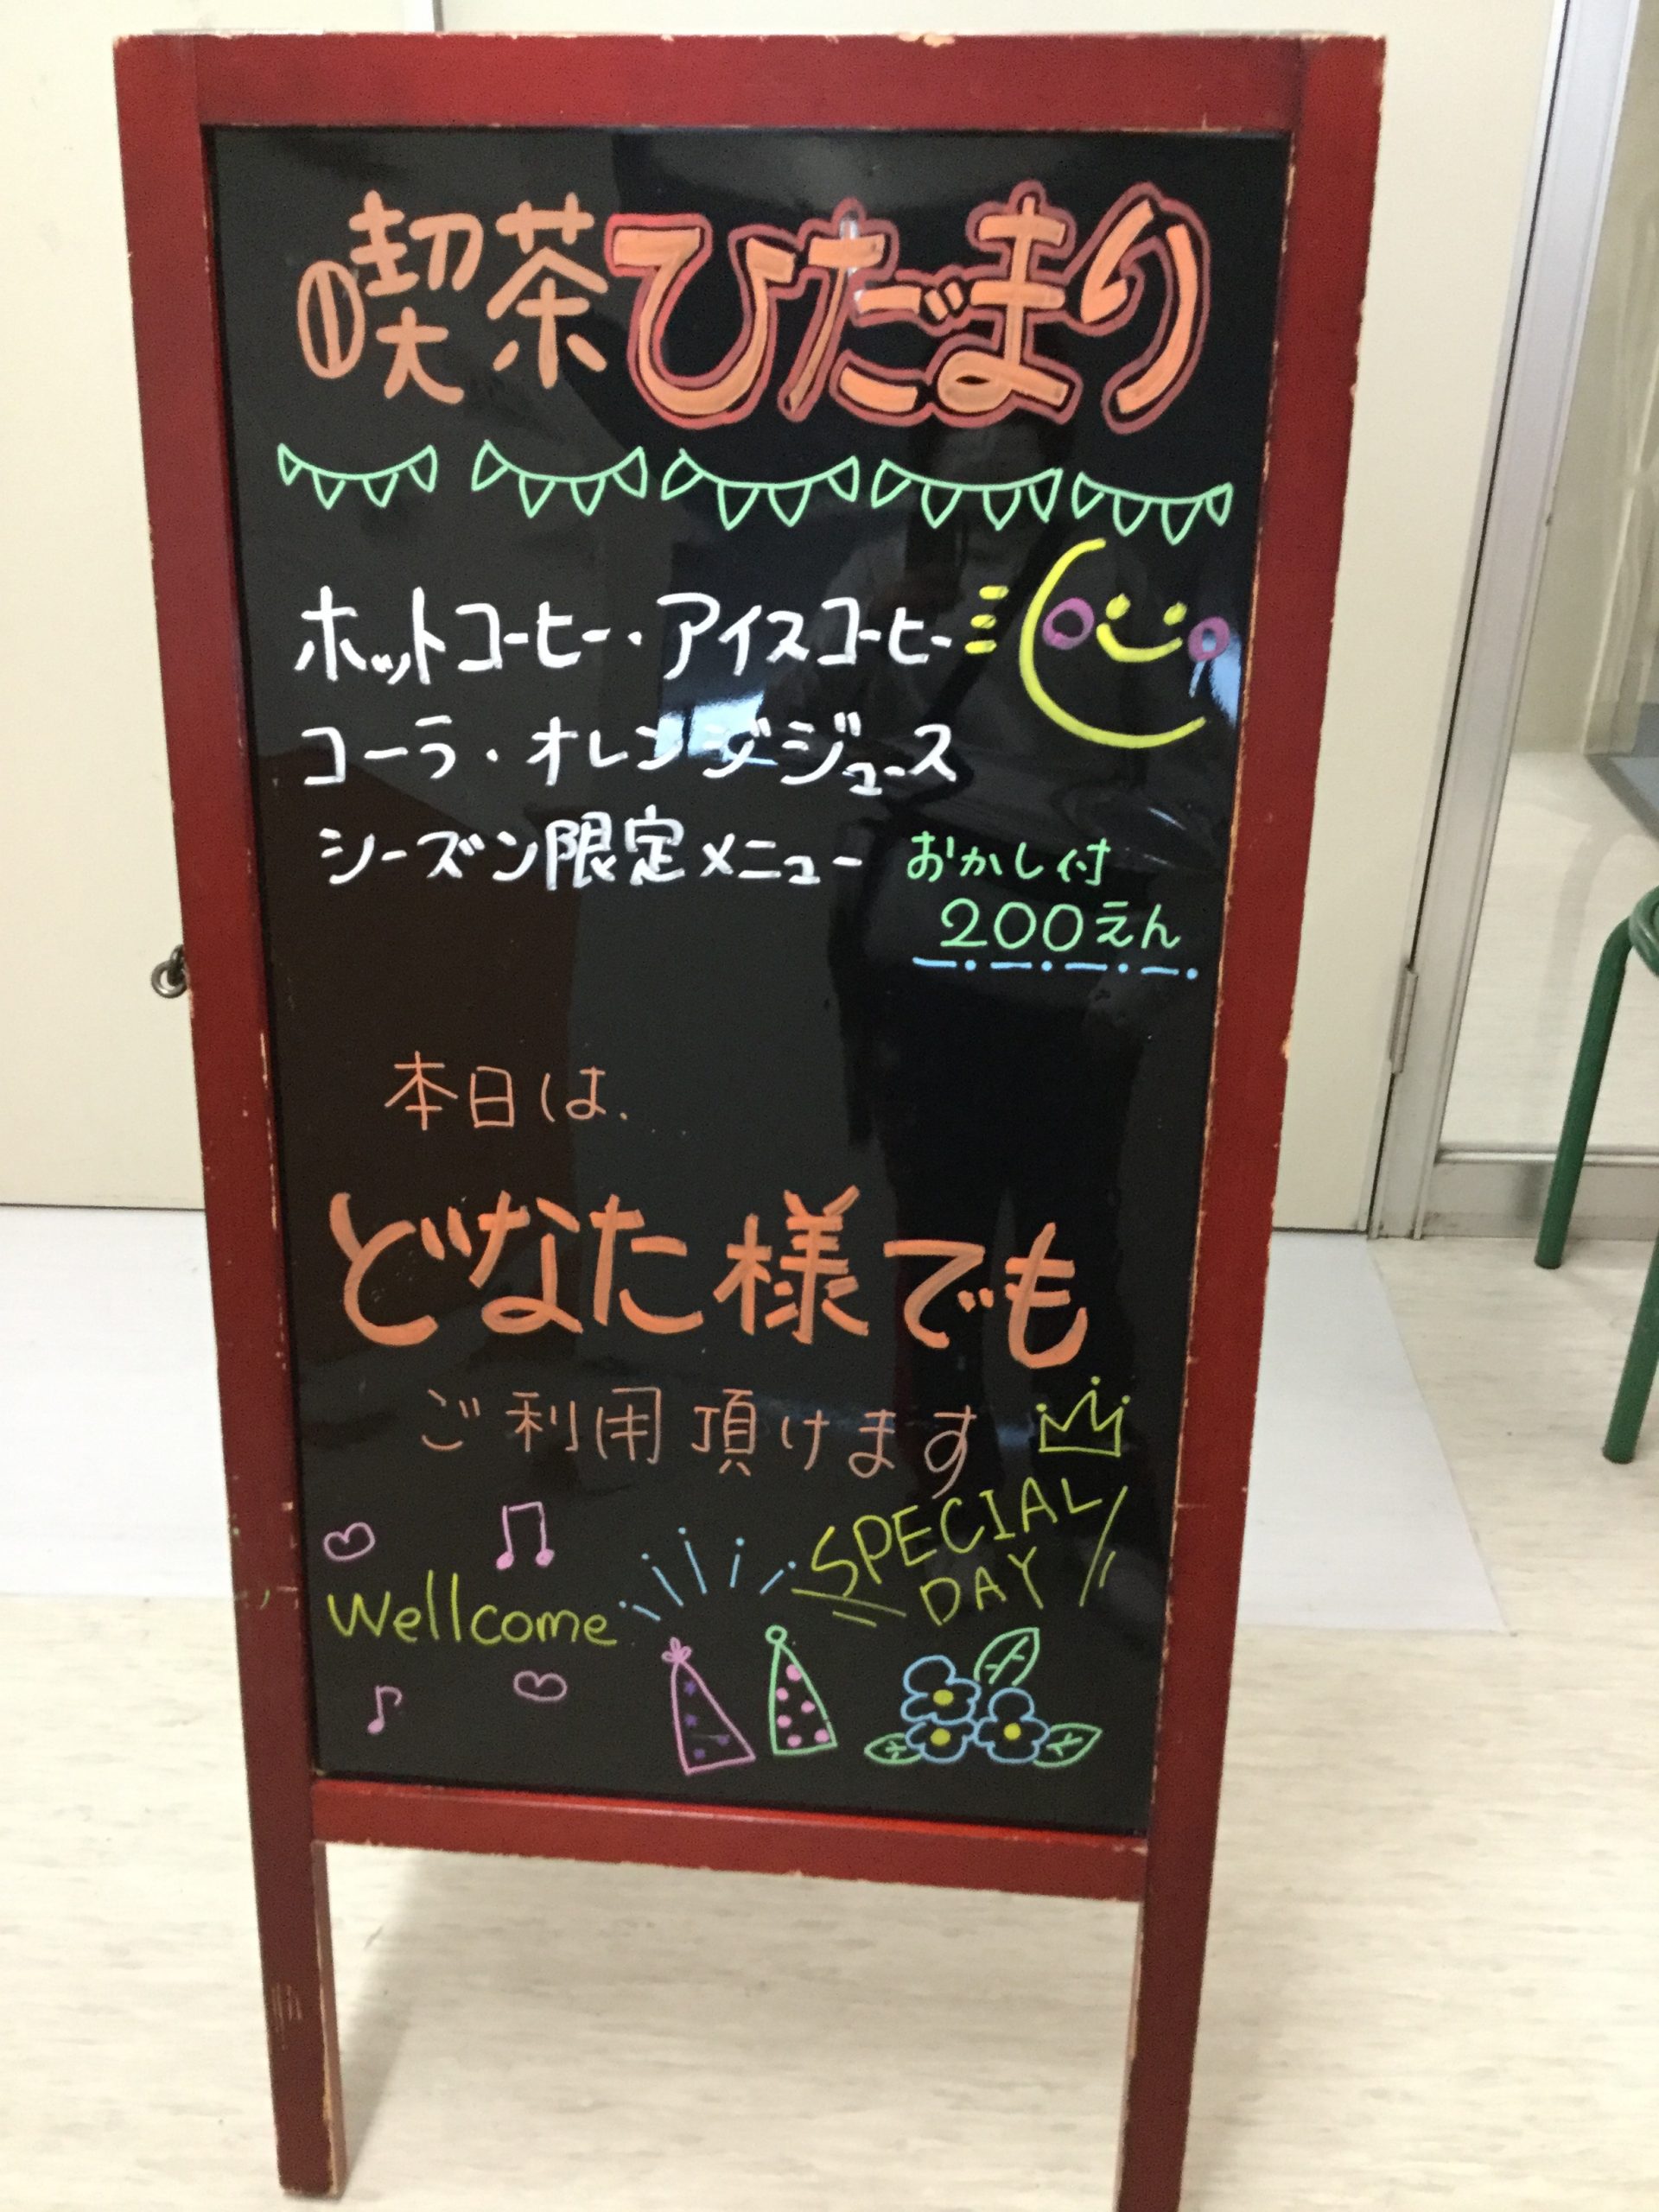 喫茶ひだまり
ホットコーヒー・アイスコーヒー
コーラ・オレンジジュース
シーズン限定メニュー
おかし付
200えん
本日は、
どなた様でも
ご利用頂けます
SPECIAL
DAY
Wellcome